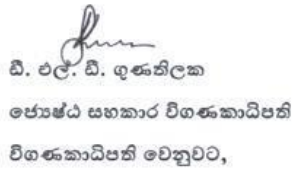 ඩී. එල්. ඩී. ගුණතිලක
ජ්‍යෙෂ්ඨ සහකාර විගණකාධිපති
විගණකාධිපති වෙනුවට,